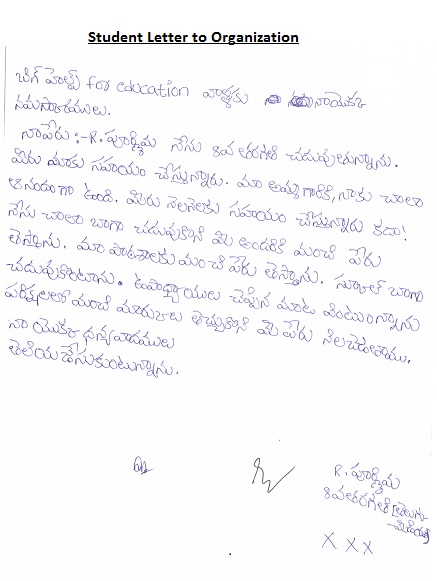 Student Letter to Organization
బిగ్ హెల్ప్ for education వాళ్లకు నాయొక్క
నమస్కారములు.
నాపేరు :- R. పూర్ణిమ నేను 8వ తరగతి చదువుతున్నాను.
మీరు మాకు సహాయం చేస్తున్నారు. మా అమ్మగారికి, నాకు చాలా
ఆనందంగా ఉంది. మీరు నెలనెలకు సహాయం చేస్తున్నారు కదా!
నేను చాలా బాగా చదువుకొని మీ అందరికి మంచి పేరు
తెస్తాను. మా పాఠశాలకు మంచి పేరు తెస్తాను. స్కూల్ బాగా
చదువుకొంటాను. ఉపాధ్యాయులు చెప్పిన మాట వింటున్నాను
పరీక్షలలో మంచి మార్కులు తెచ్చుకొని మీ పేరు నిలబెడతాము.
నా యొక్క ధన్యవాదములు
తెలియచేసుకుంటున్నాను.
R. పూర్ణిమ
8వతరగతి [తెలుగు
మీడియం]
X X X